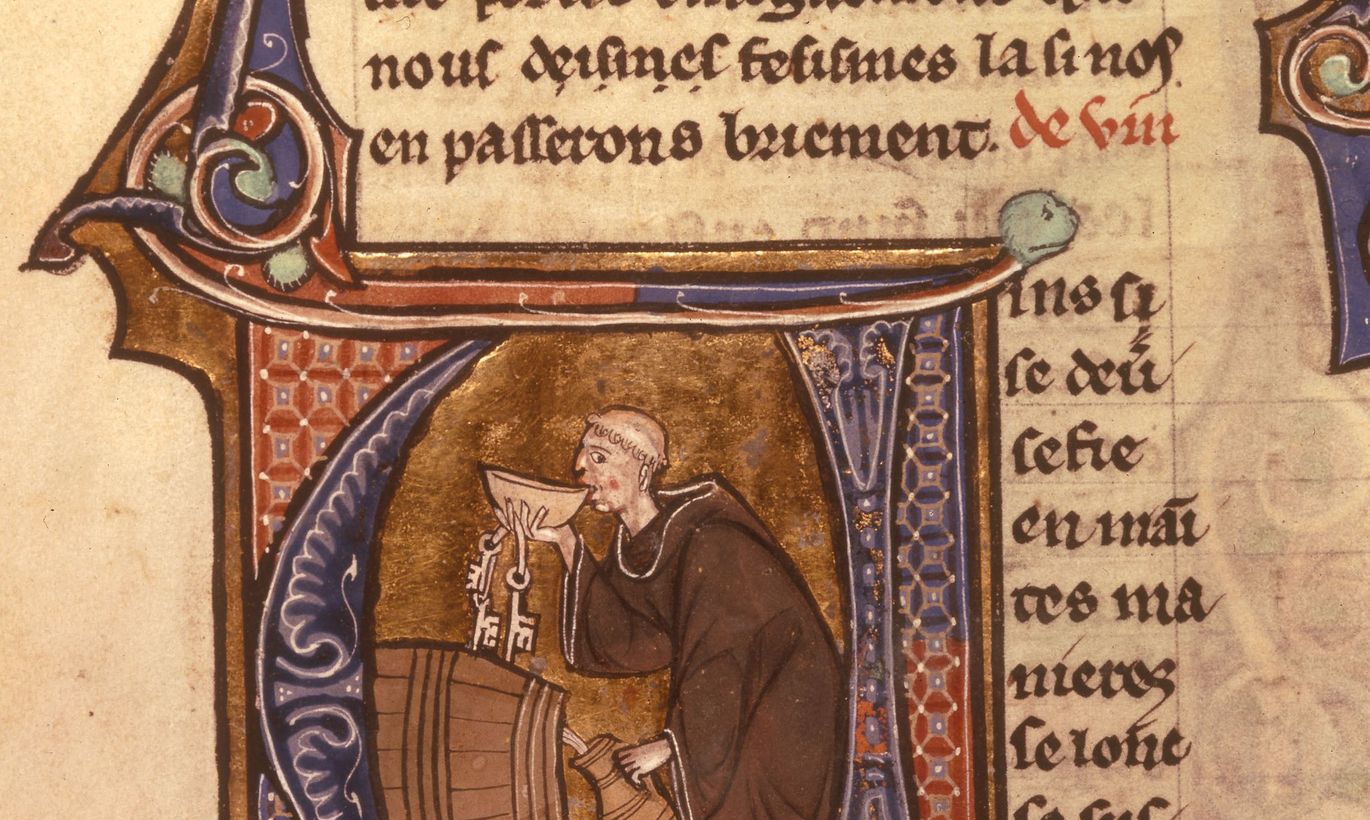 nous deismes fesismes la si nos
en passerons briement. de vin
ins si
se deu
sefie
en mãi
tes ma
nieres
se lonc